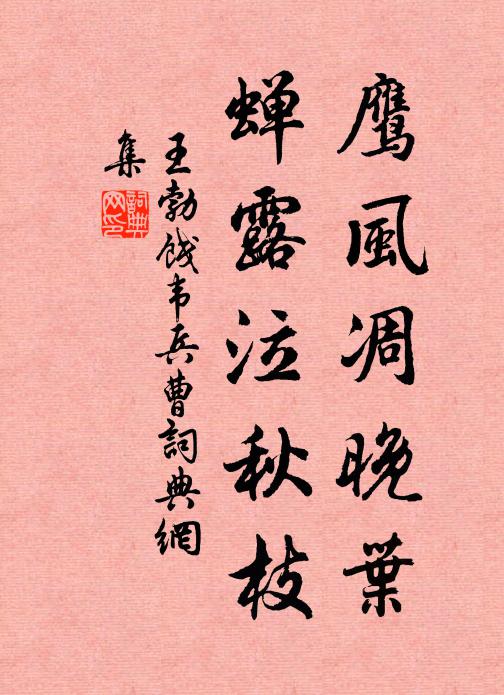 鹰風凋晚葉
蝉露泣秋枝
王勃餞韦兵曹詞典網
集
詞典网印